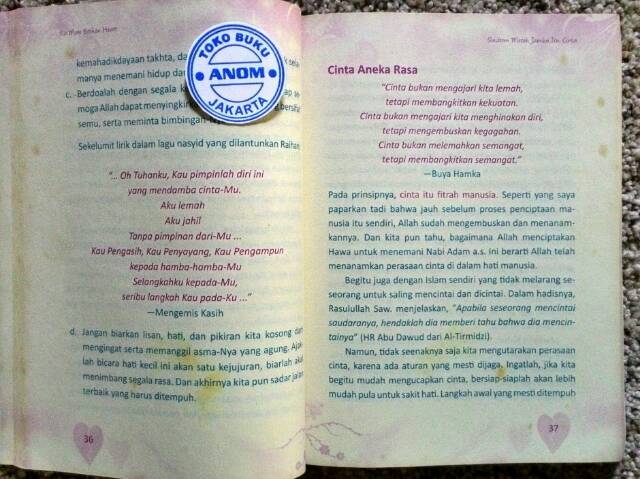 kemahadikdayaan takhta, da
manya menemani hidup dar
c. Berdoalah dengan segala k
moga Allah dapat menyingkirk
semu, serta meminta bimbingan-
Sekelumit lirik dalam lagu nasyid yang dilantunkan Raihan
“... Oh Tuhanku, Kau pimpinlah diri ini
yang mendamba cinta-Mu.
Aku lemah
Aku jahil
Tanpa pimpinan dari-Mu ...
Kau Pengasih, Kau Penyayang, Kau Pengampun
kepada hamba-hamba-Mu
Selangkahku kepada-Mu,
seribu langkah Kau pada-Ku ...”
—Mengemis Kasih
d. Jangan biarkan lisan, hati, dan pikiran kita kosong dari
mengingat serta memanggil asma-Nya yang agung. Ajak
lah bicara hati kecil ini akan satu kejujuran, biarlah akal
menimbang segala rasa. Dan akhirnya kita pun sadar jalan
terbaik yang harus ditempuh.
36
TOKO BUKU
ANOM
JAKARTA
Cinta Aneka Rasa
“Cinta bukan mengajari kita lemah,
tetapi membangkitkan kekuatan.
Cinta bukan mengajari kita menghinakan diri,
tetapi mengembuskan kegagahan.
Cinta bukan melemahkan semangat,
tetapi membangkitkan semangat.”
—Buya Hamka
Pada prinsipnya, cinta itu fitrah manusia. Seperti yang saya
paparkan tadi bahwa jauh sebelum proses penciptaan ma-
nusia itu sendiri, Allah sudah mengembuskan dan menanam-
kannya. Dan kita pun tahu, bagaimana Allah menciptakan
Hawa untuk menemani Nabi Adam a.s. ini berarti Allah telah
menanamkan perasaan cinta di dalam hati manusia.
Begitu juga dengan Islam sendiri yang tidak melarang se-
seorang untuk saling mencintai dan dicintai. Dalam hadisnya,
Rasulullah Saw. menjelaskan, “Apabila seseorang mencintai
saudaranya, hendaklah dia memberi tahu bahwa dia mencin-
tainya” (HR Abu Dawud dari Al-Tirmidzi).
Namun, tidak seenaknya saja kita mengutarakan perasaan
cinta, karena ada aturan yang mesti dijaga. Ingatlah, jika kita
begitu mudah mengucapkan cinta, bersiap-siaplah akan lebih
mudah pula untuk sakit hati. Langkah awal yang mesti ditempuh
37